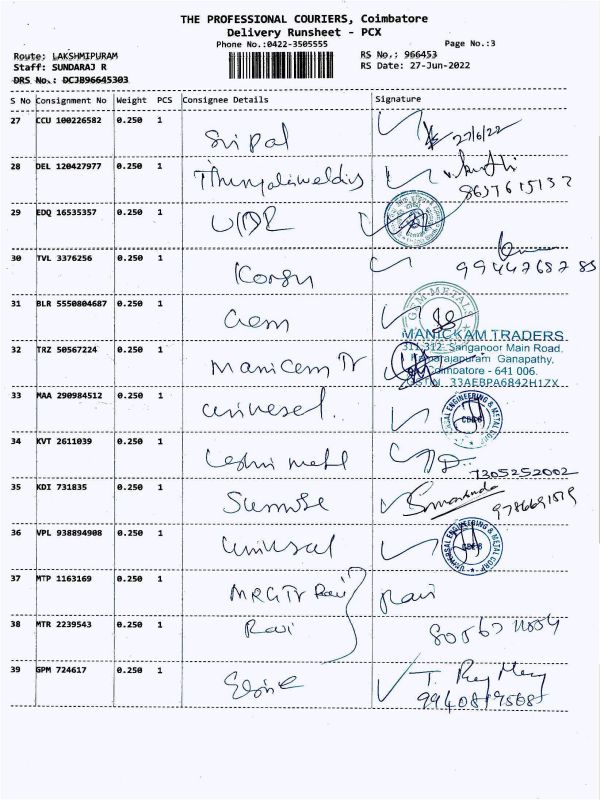 THE PROFESSIONAL COURIERS, Coimbatore
Delivery Runsheet - PCX
Phone No.:0422-3505555
Page No.:3
Route: LAKSHMIPURAM
RS No.: 966453
Staff: SUNDARAJ R
RS Date: 27-Jun-2022
DRS No.: DCJB96645303
S No Consignment No Weight PCS Consignee Details Signature
27 CCU 100226582 0.250 1 Sri pal 27/6/22
28 DEL 120427977 0.250 1
29 EDQ 16535357 0.250 1
30 TVL 3376256 0.250 1
31 BLR 5550804687 0.250 1 Gem
GEM METALS
MANICKAM TRADERS
311,312, Sanganoor Main Road,
Kamarajapuram Ganapathy,
Coimbatore - 641 006.
GSTIN 33AEBPA6842H1ZX
32 TRZ 50567224 0.250 1 Manicam Tr
33 MAA 290984512 0.250 1 universal
34 KVT 2611039 0.250 1 7305252002
35 KDI 731835 0.250 1
36 VPL 938894908 0.250 1 universal
UNIVERSAL ENGINEERING & METAL CORP
37 MTP 1163169 0.250 1 Ravi Ravi
38 MTR 2239543 0.250 1 Ravi
39 GPM 724617 0.250 1